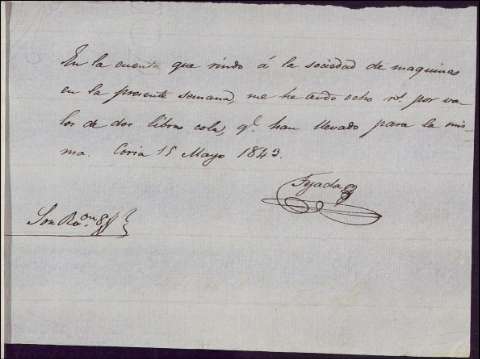 En la cuenta que rindo á la sociedad de maquinas
en la presente semana, me he dado ocho rs. por va-
lor de dos libras cola, q.e han llevado para la mis-
ma. Coria 15 Mayo 1843.
Tejada
Son R.s on 8